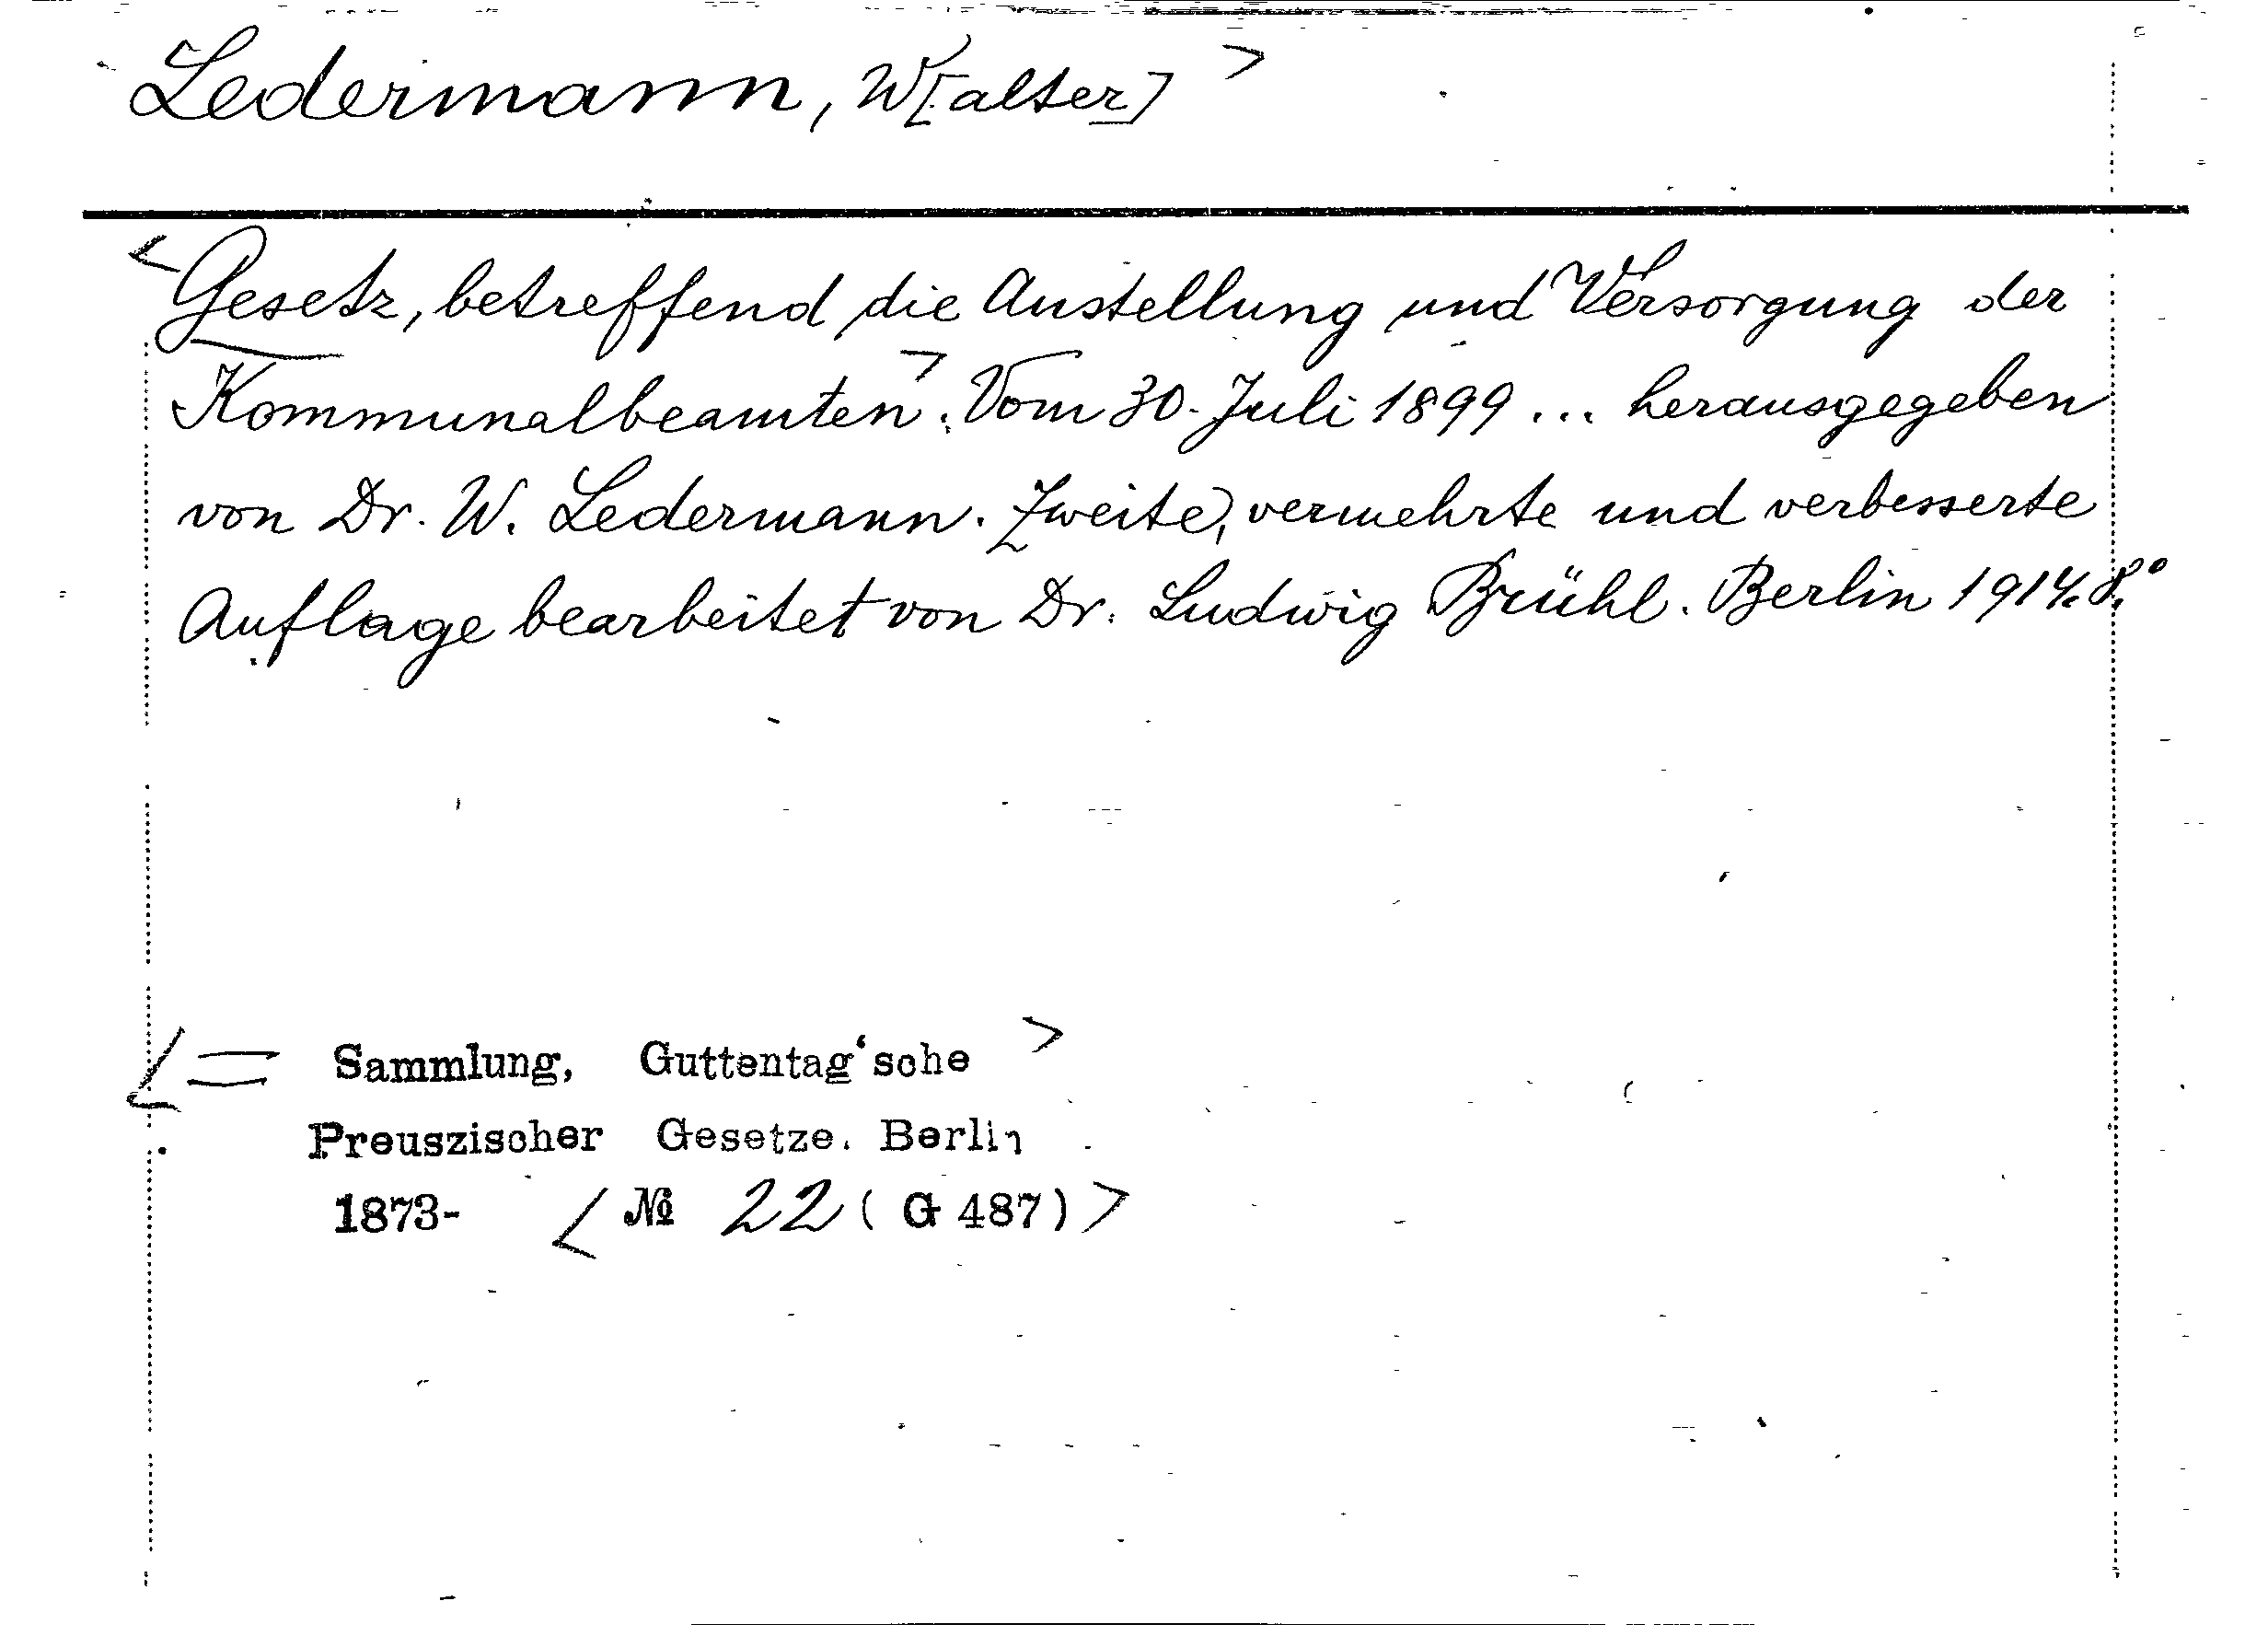 Ledermann, W[alter] >
< Gesetz, betreffend die Anstellung und Versorgung der
Kommunalbeamten >. Vom 30. Juli 1899 ... herausgegeben
von Dr. W. Ledermann. Zweite, vermehrte und verbesserte
Auflage bearbeitet von Dr. Ludwig Brühl. Berlin 1914. 8°.
< = Sammlung, Guttentag'sche >
Preuszischer Gesetze. Berlin
1873- < № 22 ( G 487) >